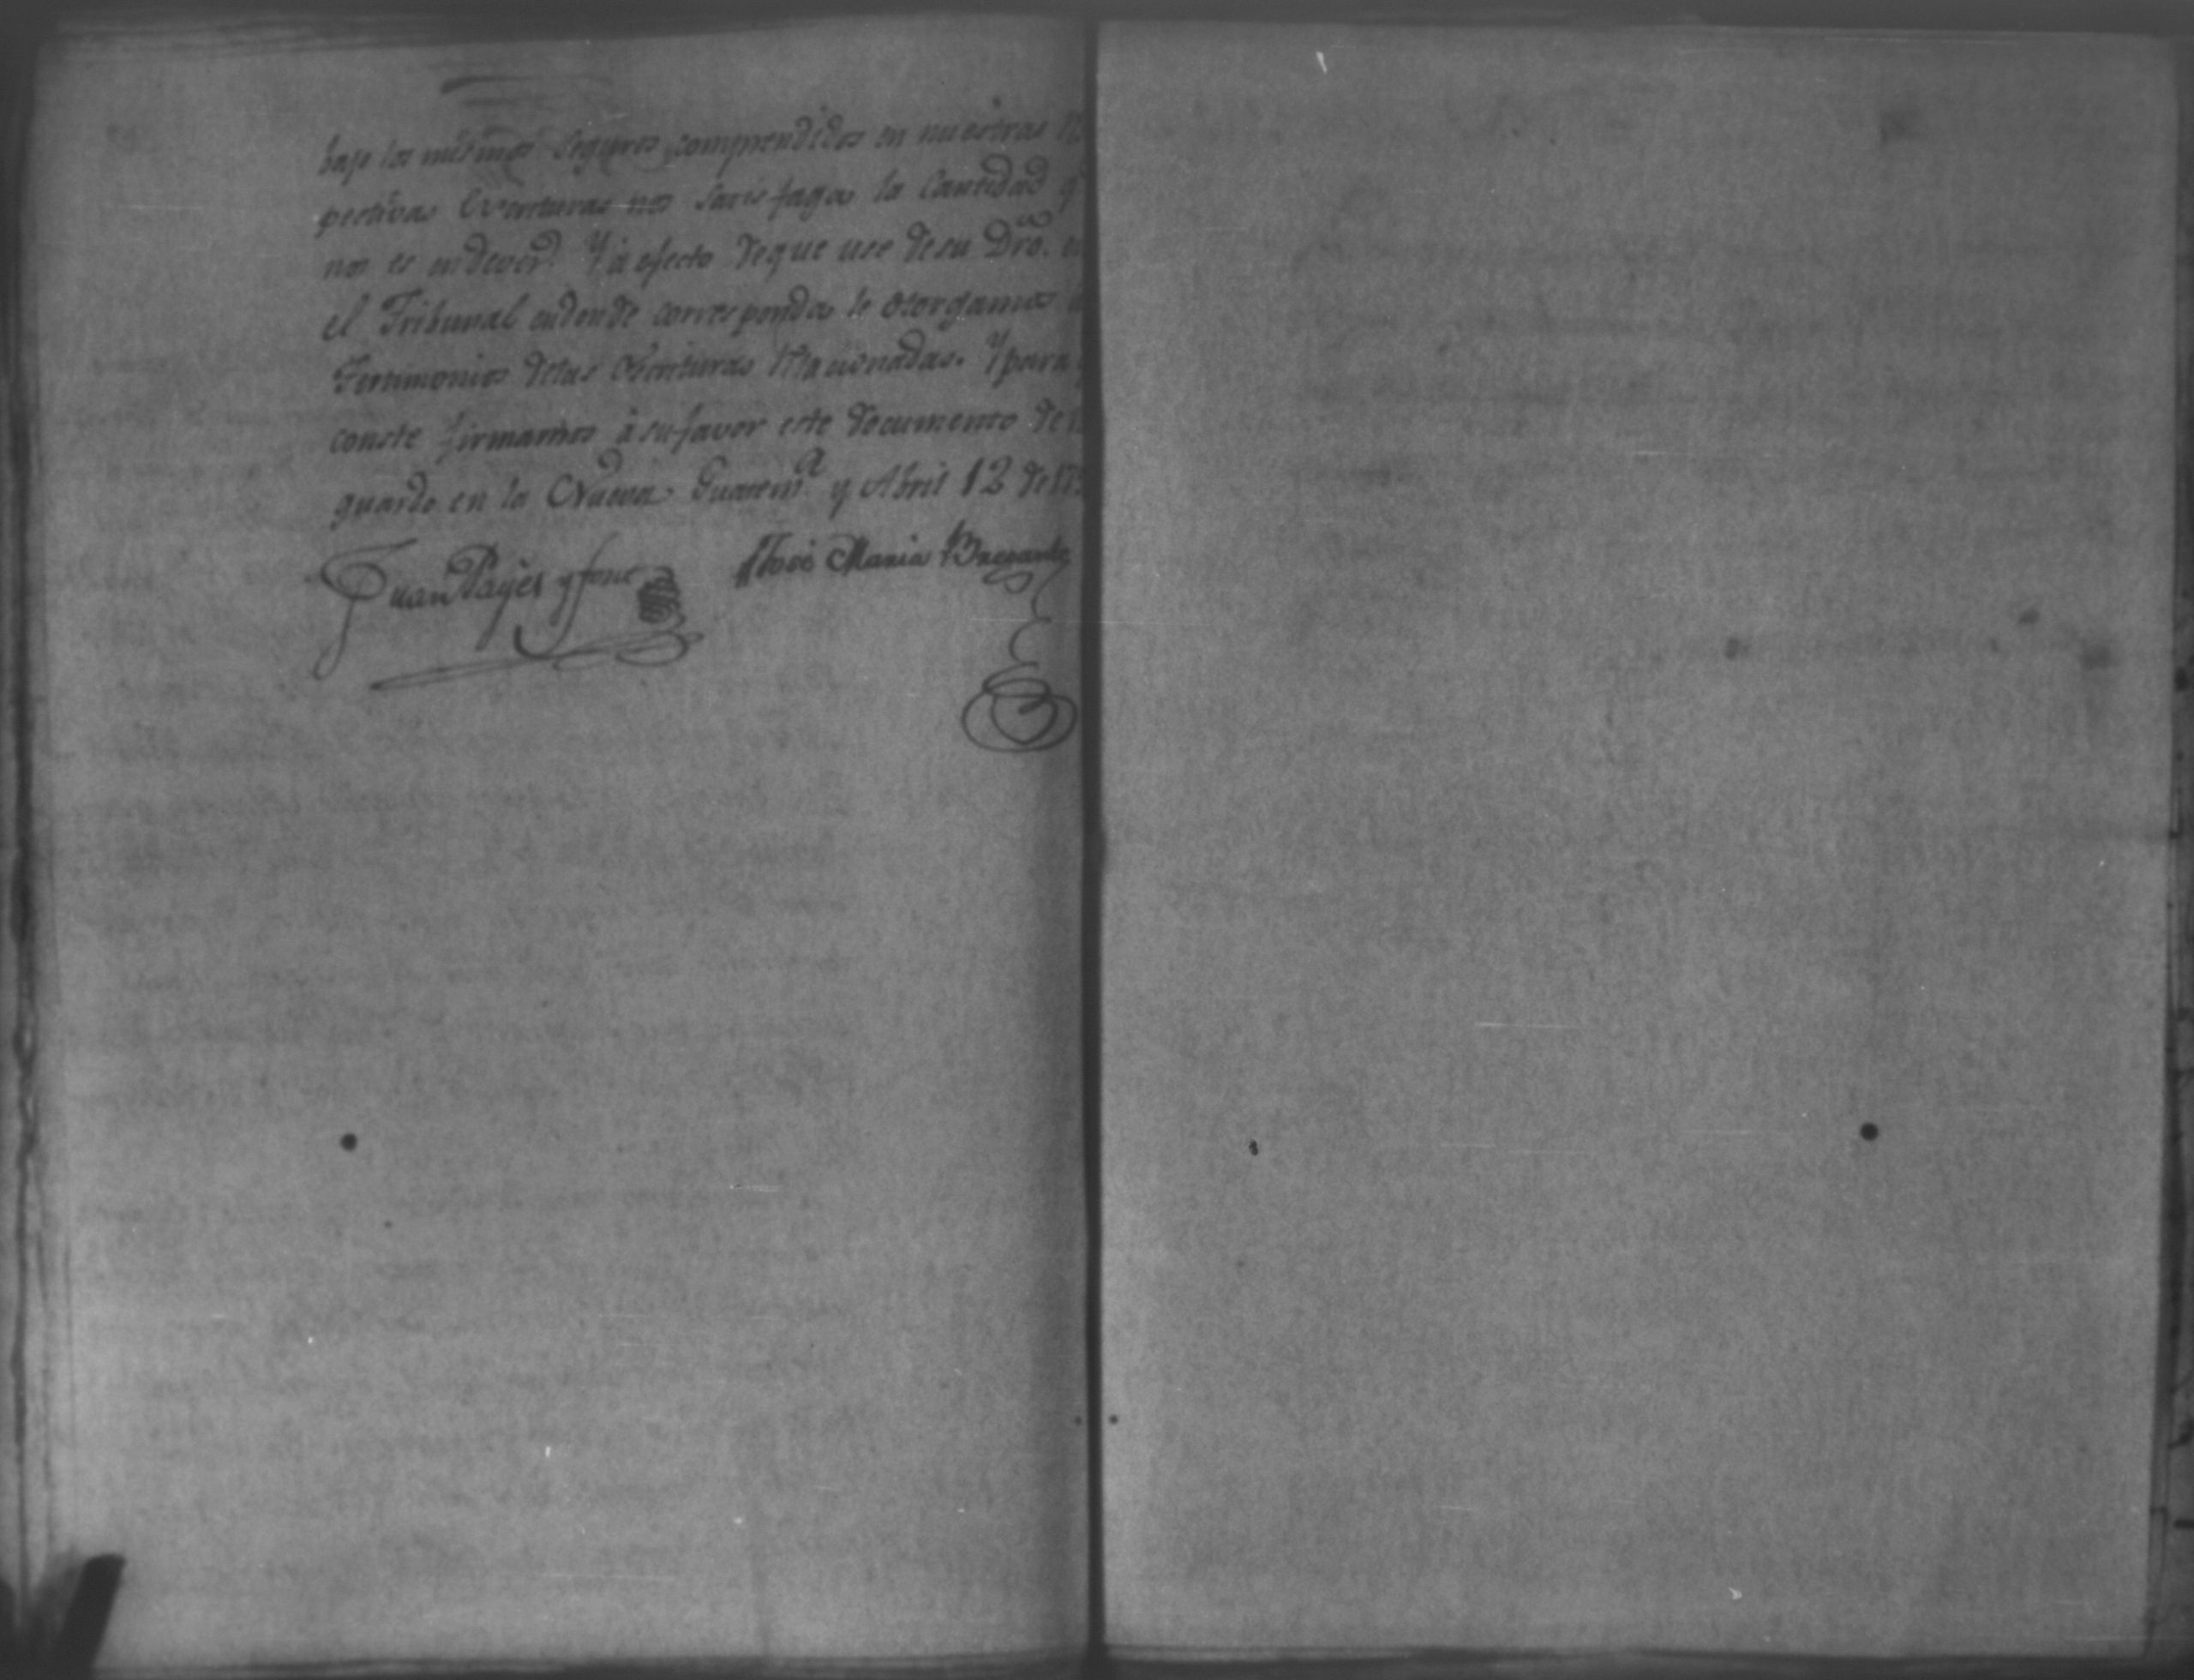 bajo los mismos seguros comprendidos en nuestras
pectivas Escrituras nos satisfaga la Cantidad q
nos es en dever. Y a efecto de que use de su Dro.
el Tribunal endonde corresponda le otorgamos
Testimonios delas Escrituras mencionadas. Y para
conste firmamos à su favor este documento de
guardo en la Nueva Guatemª y Abril 12 de 17
Juan Payés y font José Maria